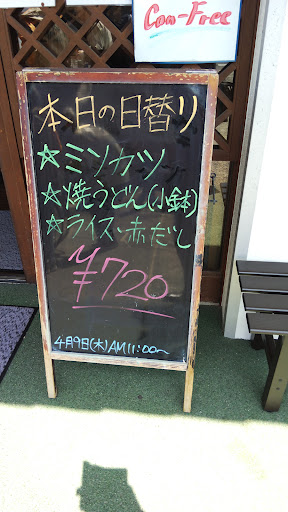 Con-Free
本日の日替り
☆ミソカツ
☆焼うどん(小鉢)
☆ライス・赤だし
¥720
4月9日(木)AM11:00〜